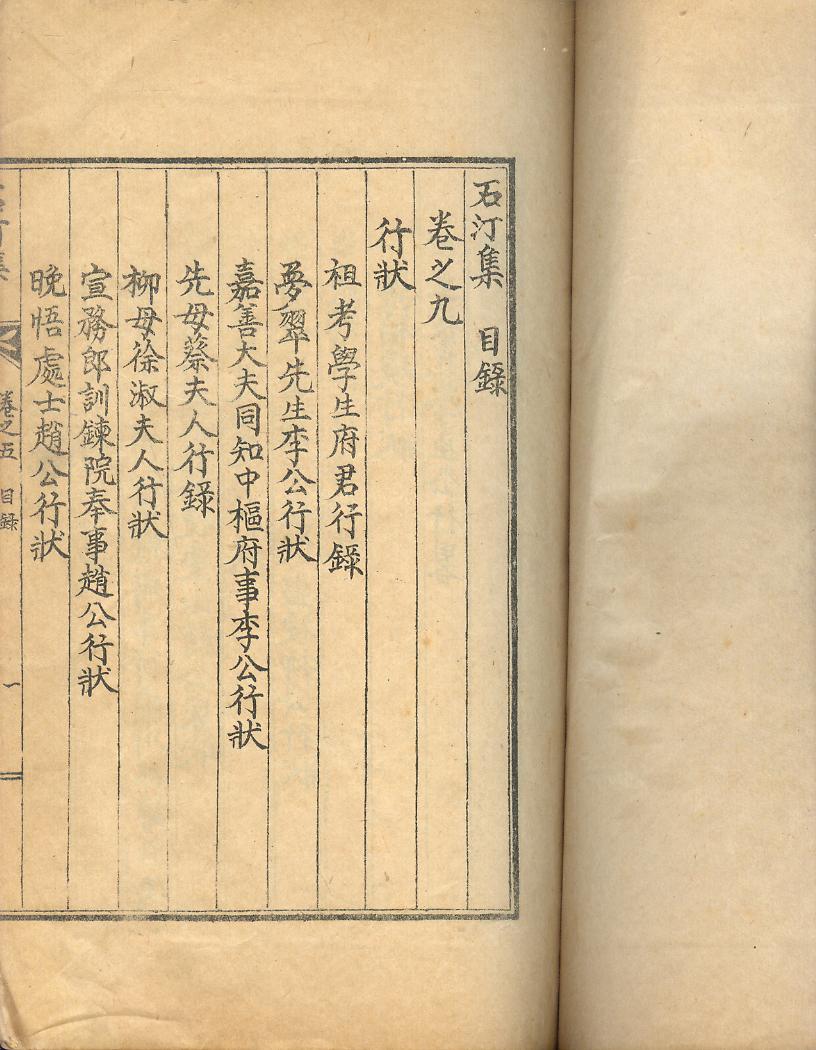 石汀集 目錄
卷之九
行狀
祖考學生府君行錄
夢翠先生李公行狀
嘉善大夫同知中樞府事李公行狀
先母蔡夫人行錄
柳母徐淑夫人行狀
宣務郎訓鍊院奉事趙公行狀
晩悟處士趙公行狀
石汀集 卷之五 目錄 一